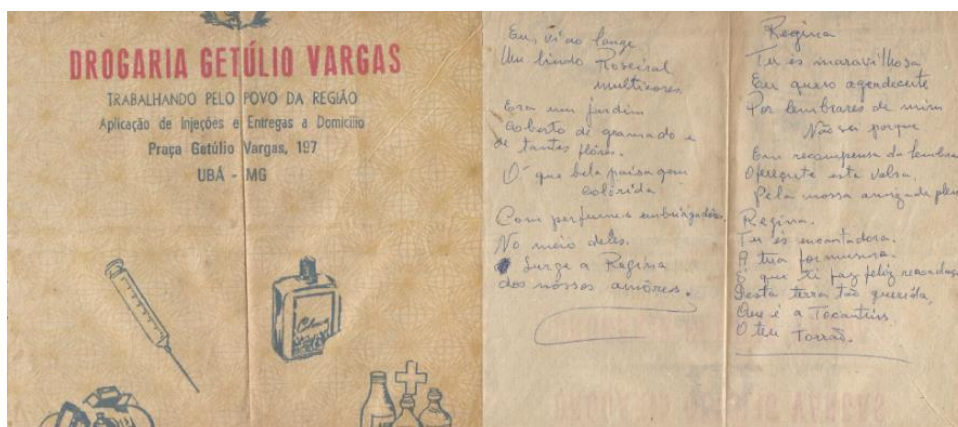 DROGARIA GETÚLIO VARGAS
TRABALHANDO PELO POVO DA REGIÃO
Aplicação de Injeções e Entregas a Domicílio
Praça Getúlio Vargas, 197
UBÁ - MG
Eu, vi ao longe
Um lindo Roseiral
multicores
Era um jardim
coberto de gramado e
de tantas flôres.
Ó que bela paisagem
colórida
Com perfumes
No meio deles.
Surge a Regina
dos nóssos amôres.
Regina
Tu és maravilhosa
Eu quero agradecerte
Por lembrares de mim
Não sei porque
Em recompensa da
esta valsa,
Pela nossa amizade
Regina.
Tu és encantadora.
A tua formusura.
É que ti faz feliz
Desta terra tão querida,
Que é a Tocantins
O teu Torrão.